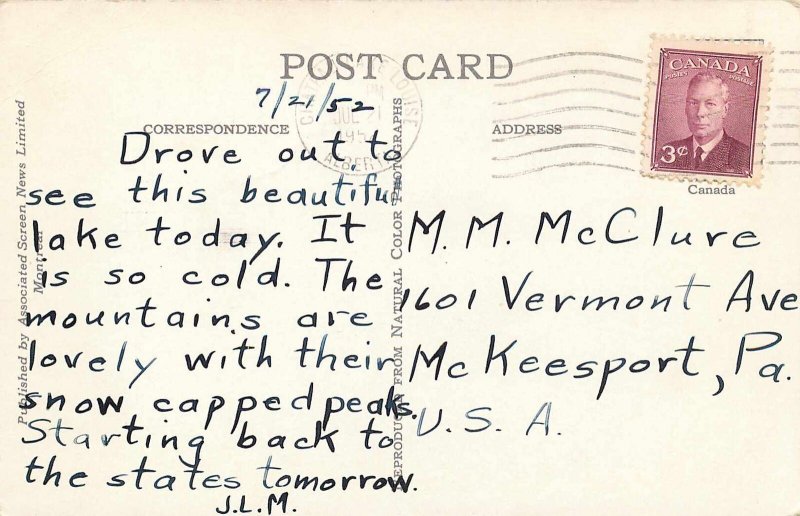 POST CARD
7/21/52
CORRESPONDENCE
ADDRESS
CANADA
POSTES POSTAGE
3¢
Canada
LAKE LOUISE
PM
JUL 21
195
ALBERTA
Drove out to
see this beautiful
lake today. It
is so cold. The
mountains are
lovely with their
snow capped peaks.
Starting back to
the states tomorrow.
J.L.M.
M. M. McClure
1601 Vermont Ave
McKeesport, Pa.
U. S. A.
Published by Associated Screen News Limited
Montreal
REPRODUCTION FROM NATURAL COLOR PHOTOGRAPHS